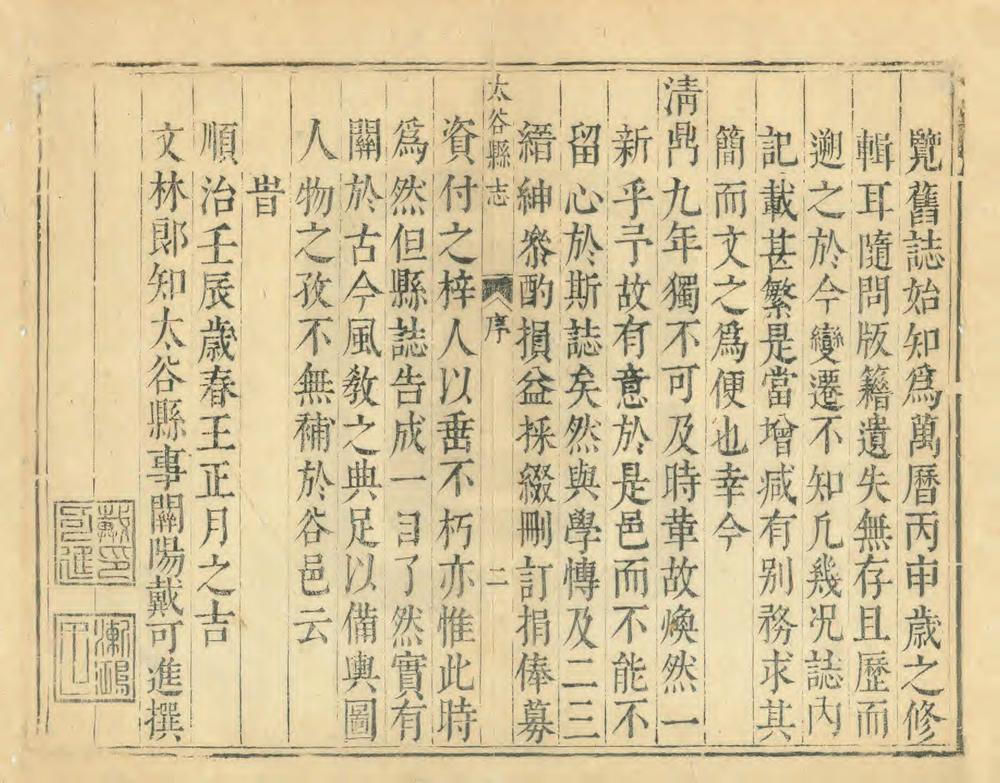 覽舊誌始知爲萬曆丙申歲之修
輯耳隨問版籍遺失無存且歷而
遡之於今變遷不知凡幾況誌內
記載甚繁是當增减有别務求其
簡而文之爲便也幸今
淸鼎九年獨不可及時革故煥然一
新乎予故有意於是邑而不能不
留心於斯誌矣然與學愽及二三
縉紳叅酌損益採綴刪訂捐俸募
太谷縣志
序
二
資付之梓人以垂不朽亦惟此時
爲然但縣誌告成一目了然實有
關於古今風敎之典足以備輿圖
人物之孜不無補於谷邑云
旹
順治壬辰歲春王正月之吉
文林郎知太谷縣事關陽戴可進撰
戴印可進
漸鴻